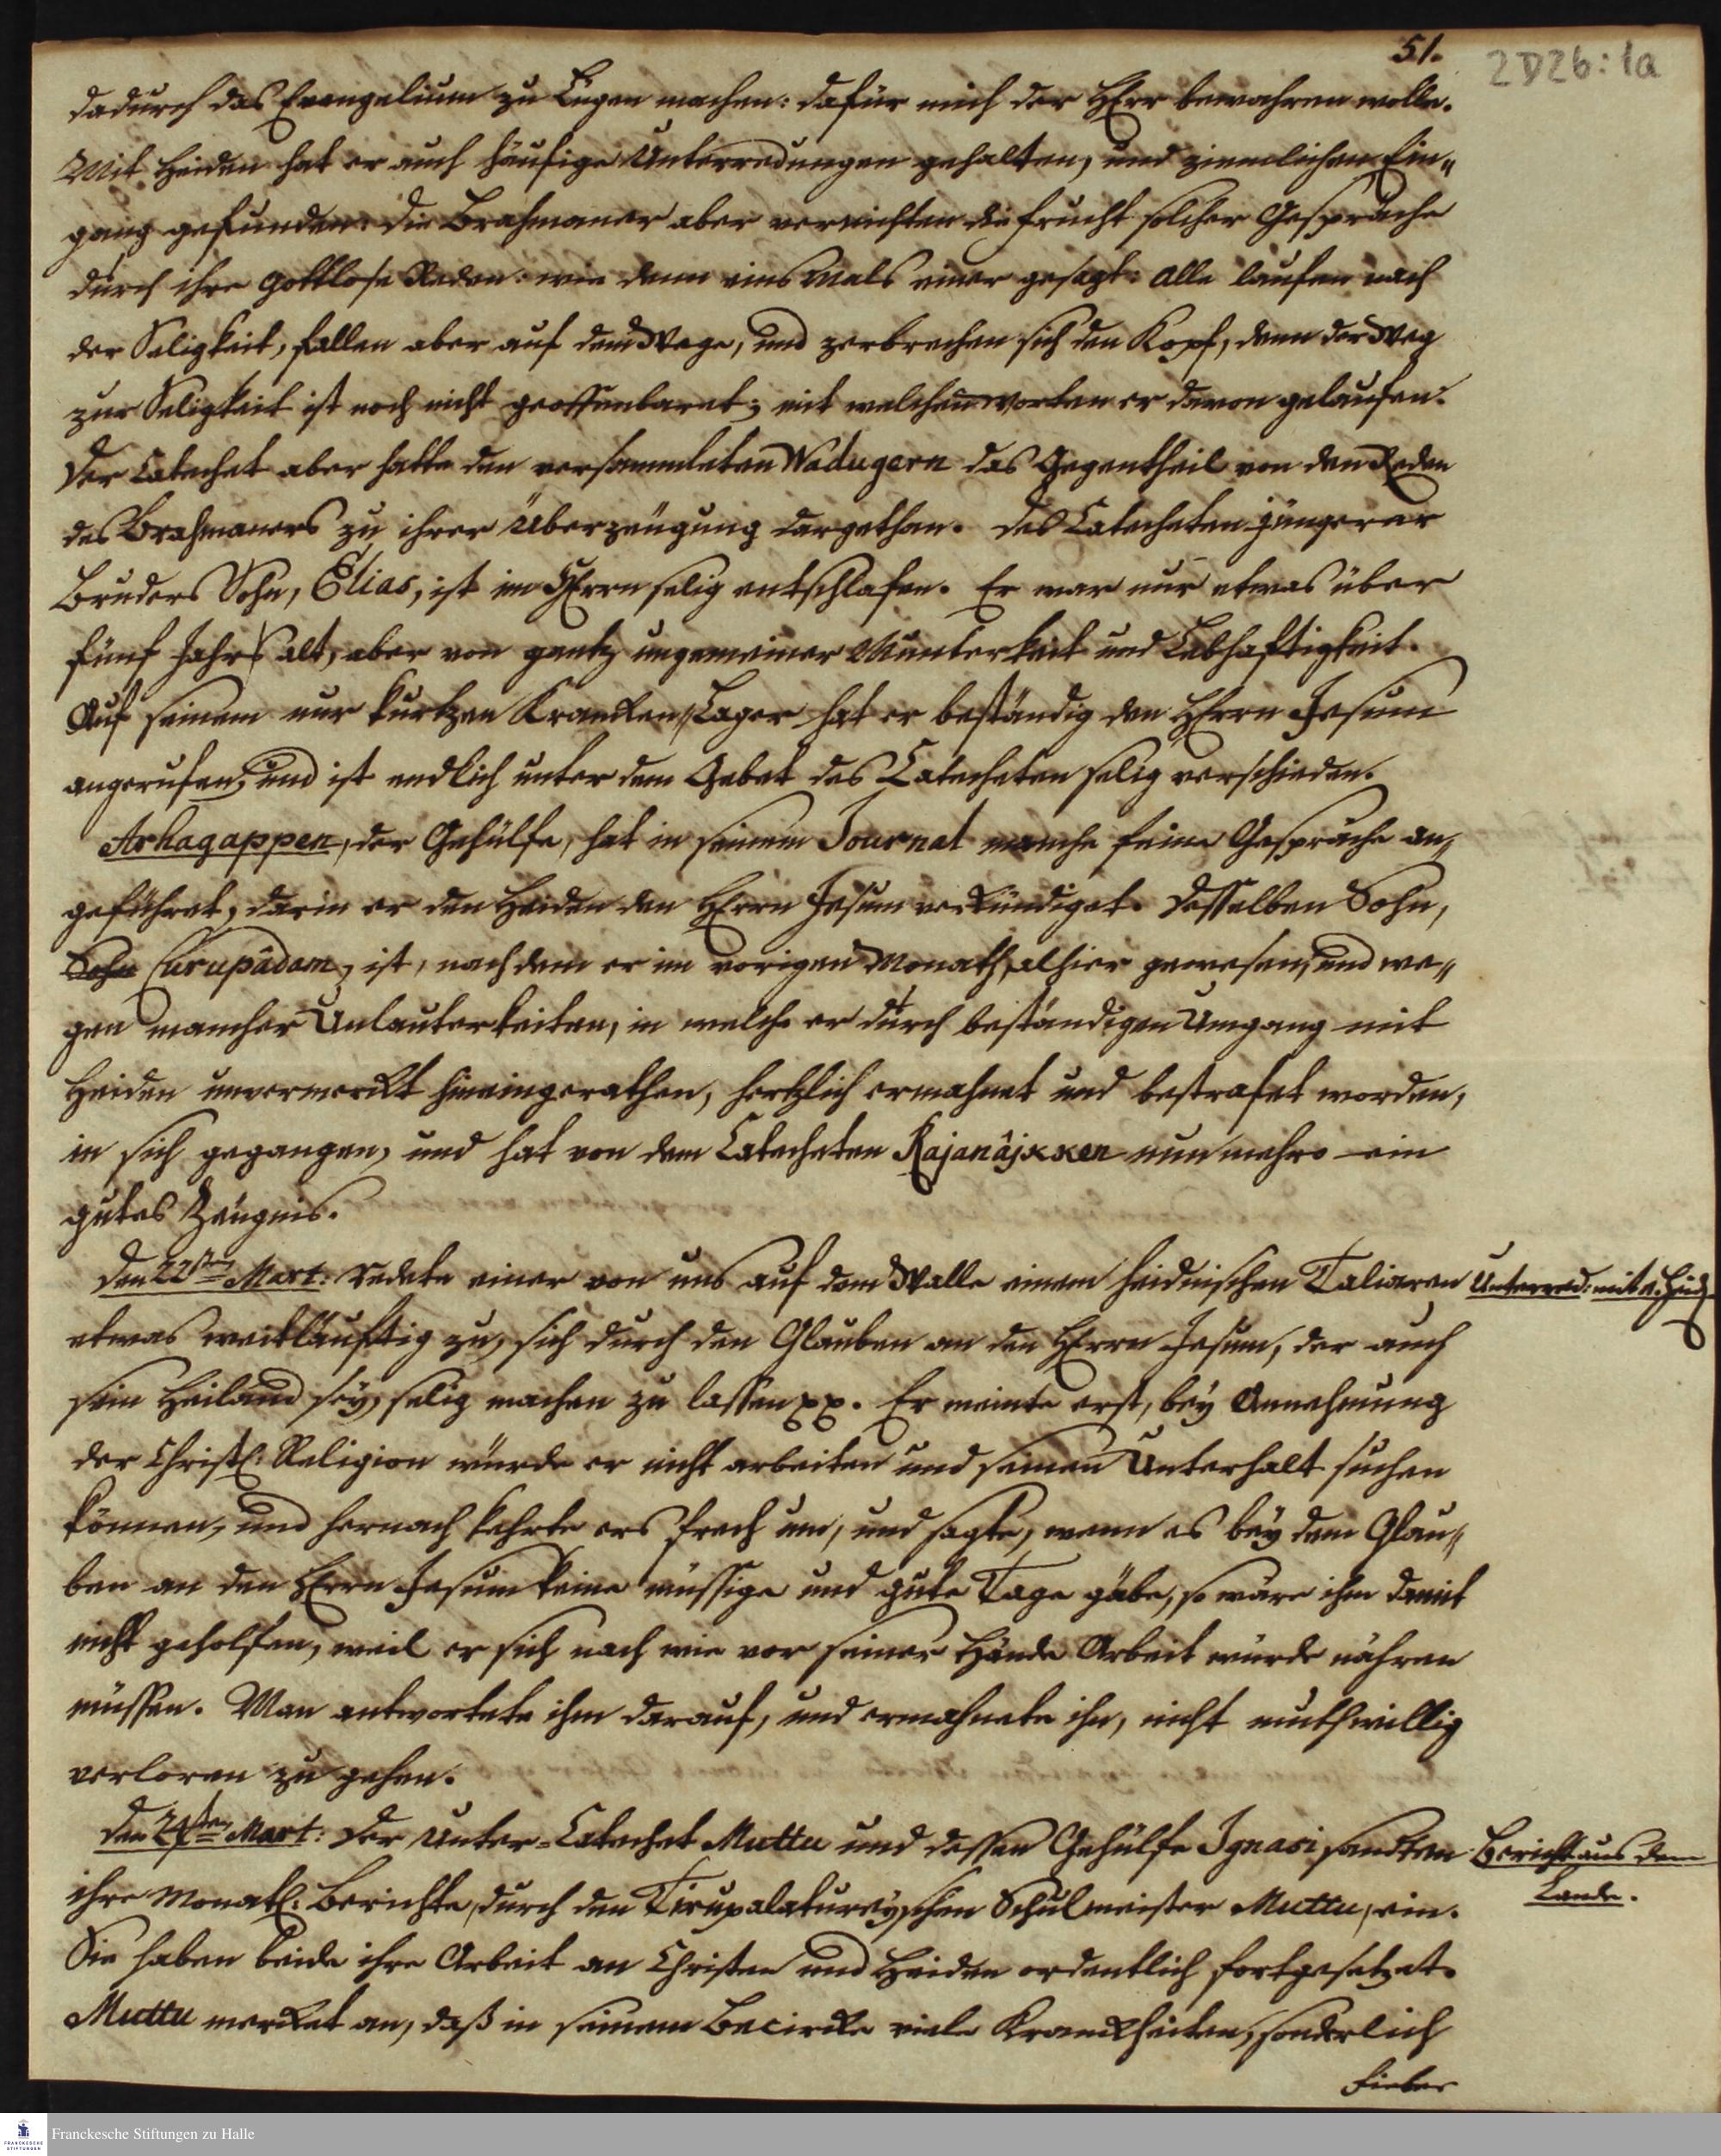 51.
2D26:1a
dadurch das Evangelium zu Lügen machen: dafür mich der HErr bewahren wolle.
Mit Heiden hat er auch häufige Unterredungen gehalten, und ziemlichen Ein„
gang gefunden: die Brahmaner aber vernichten die Frucht solcher Gespräche
durch ihre gottlose Reden: wie denn eins mals einer gesagt: Alle laufen nach
der Seligkeit, fallen aber auf dem Wege, und zerbrechen sich den Kopf, denn der Weg
zur Seligkeit ist noch nicht geoffenbaret; mit welchen worten er davon gelaufen.
Der Catechet aber hatte den versammleten Wadugern das Gegentheil von den Reden
des Brahmaners zu ihrer Überzeugung dargethan. Des Catecheten jüngerer
Bruders Sohn, Elias, ist im HErrn selig entschlafen. Er war nur etwas über
fünf Jahr alt, aber von gantz ungemeiner Munterkeit und Lebhaftigkeit.
Auf seinem nur kurtzen Krancken Lager hat er beständig den HErrn Jesum
angerufen, und ist endlich unter dem Gebet des Catecheten selig verschieden.
Arhagappen, der Gehülfe, hat in seinem Journal manche feine Gespräche an„
geführet, darin er den Heiden den HErrn Jesum verkündiget. Desselben Sohn,
Sohn Curupâdam, ist, nachdem er im vorigen Monath alhier gewesen, und we„
gen mancher Unlauterkeiten, in welche er durch beständigen Umgang mit
Heiden unvermerckt hineingerathen, hertzlich ermahnet und bestrafet worden,
in sich gegangen, und hat von dem Catecheten Rajanâjkken nunmehro ein
gutes Zeugnis.
Den 22sten Mart: redete einer von uns auf dem Walle einem heidnischen Taliaren
Unterred: mit e. Heid.
etwas weitläuftig zu, sich durch den Glauben an den HErrn Jesum, der auch
sein Heiland sey, selig machen zu lassen pp. Er meinte erst, bey Annehmung
der Christl: Religion würde er nicht arbeiten und seinen Unterhalt suchen
können, und hernach kehrte ers frech um, und sagte, wenn es bey dem Glau„
ben an den HErrn Jesum keine müssige und gute Tage gäbe, so wäre ihm damit
nicht geholfen, weil er sich nach wie vor seiner Hände Arbeit würde nähren
müssen. Man antwortete ihm darauf, und ermahnete ihn, nicht muthwillig
verloren zu gehen.
Den 24sten Mart: Der Unter-Catechet Muttu und dessen Gehülfe Ignasi sandten
Bericht aus dem
Lande.
ihre Monatl: Berichte, durch den Tirupalatureyschen Schulmeister Muttu, ein.
Sie haben beide ihre Arbeit an Christen und Heiden ordentlich fortgesetzet.
Muttu mercket an, daß in seinem Becircke viele Kranckheiten, sonderlich
Fieber
Franckesche Stiftungen zu Halle
FRANCKESCHE
STIFTUNGEN